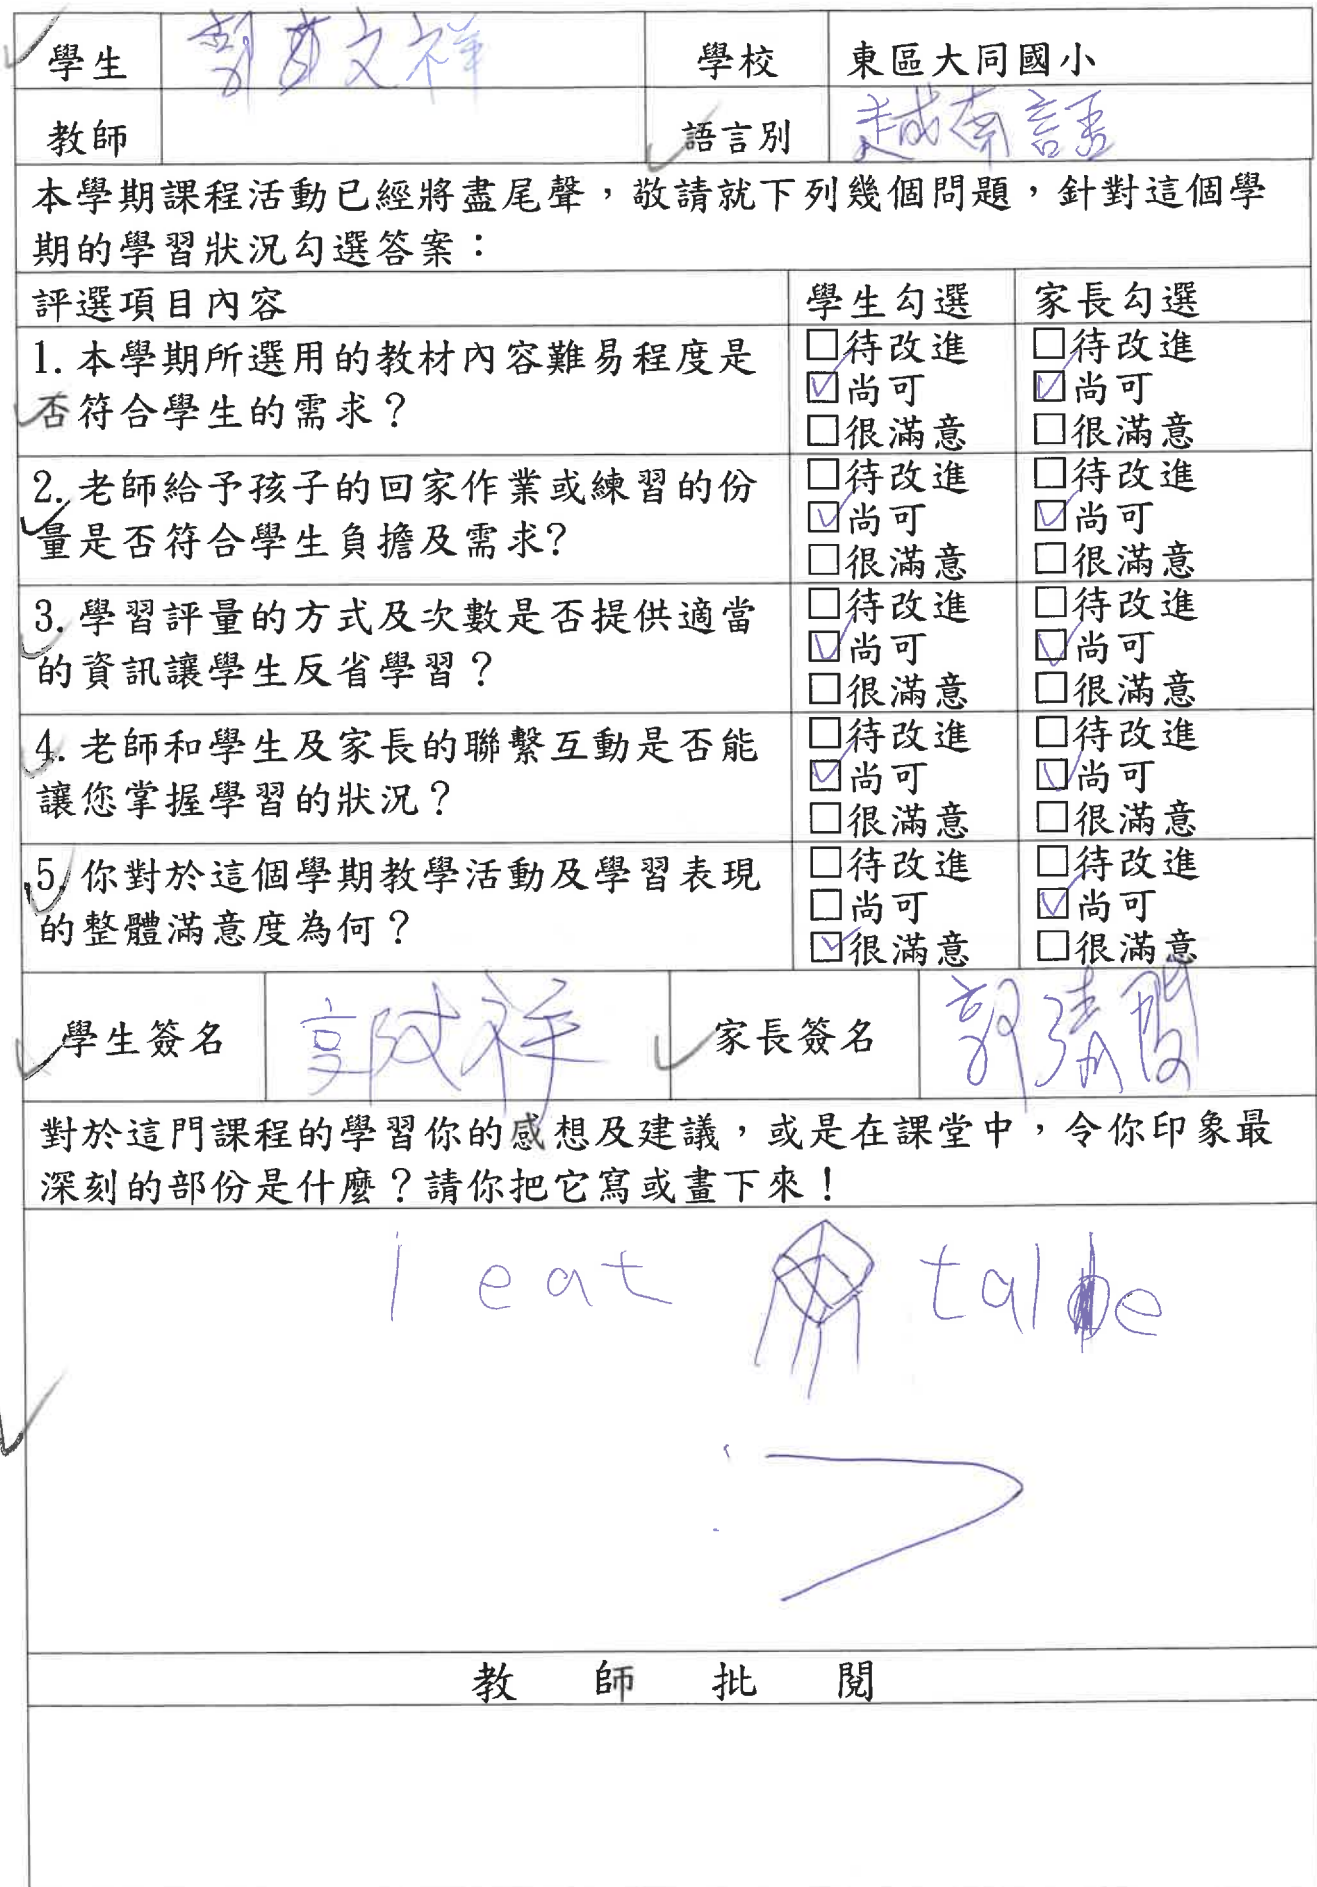 學生 郭文祥 學校 東區大同國小
教師 語言別 越南語
本學期課程活動已經將盡尾聲，敬請就下列幾個問題，針對這個學
期的學習狀況勾選答案：
評選項目內容 學生勾選 家長勾選
1. 本學期所選用的教材內容難易程度是
否符合學生的需求？
□待改進 □待改進
☑尚可 ☑尚可
□很滿意 □很滿意
2. 老師給予孩子的回家作業或練習的份
量是否符合學生負擔及需求?
□待改進 □待改進
☑尚可 ☑尚可
□很滿意 □很滿意
3. 學習評量的方式及次數是否提供適當
的資訊讓學生反省學習？
□待改進 □待改進
☑尚可 ☑尚可
□很滿意 □很滿意
4. 老師和學生及家長的聯繫互動是否能
讓您掌握學習的狀況？
□待改進 □待改進
☑尚可 ☑尚可
□很滿意 □很滿意
5. 你對於這個學期教學活動及學習表現
的整體滿意度為何？
□待改進 □待改進
□尚可 ☑尚可
☑很滿意 □很滿意
學生簽名 郭文祥 家長簽名
對於這門課程的學習你的感想及建議，或是在課堂中，令你印象最
深刻的部份是什麼？請你把它寫或畫下來！
i eat
教 師 批 閱